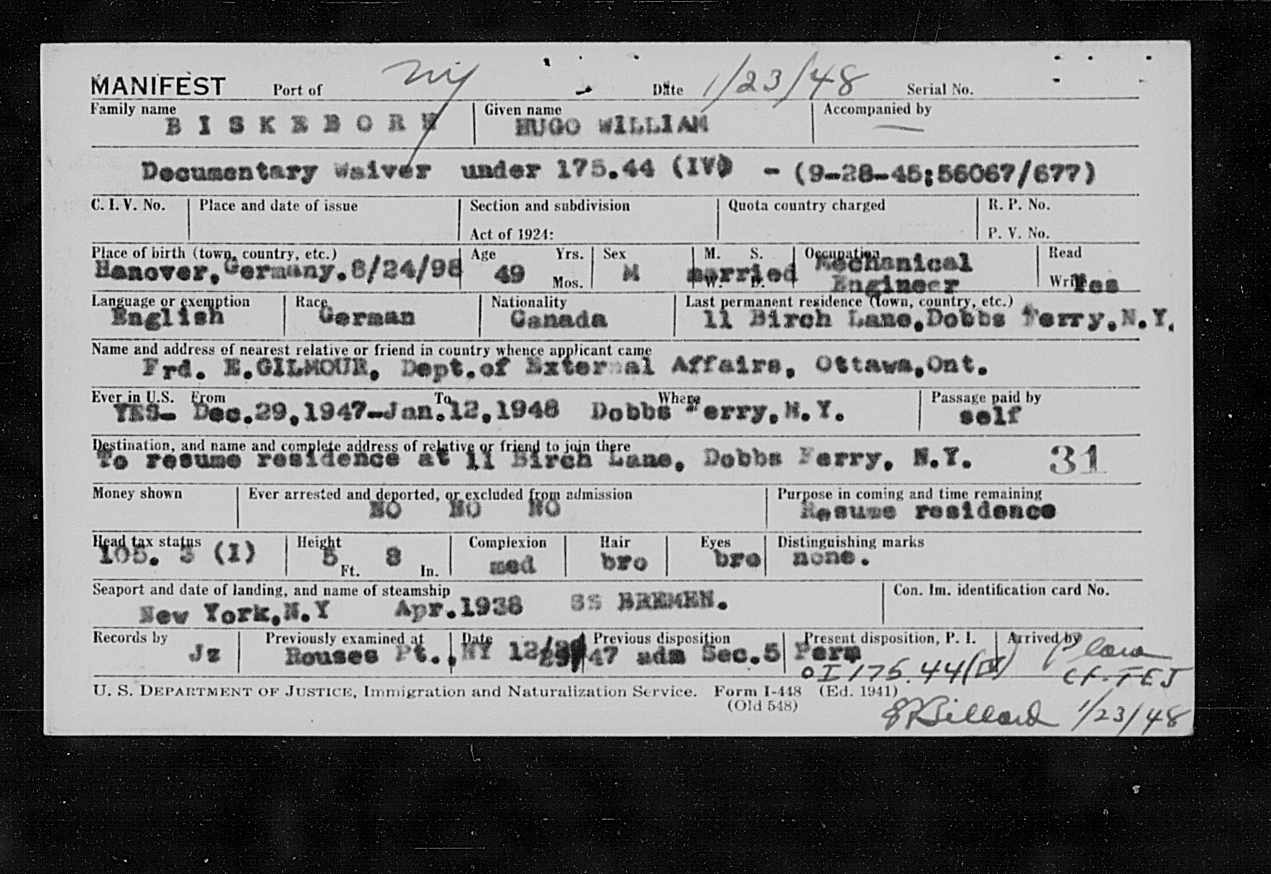 MANIFEST Port of NY Date 1/23/48 Serial No.
Family name Given name Accompanied by
BISKEBORN HUGO WILLIAM
Documentary Waiver under 175.44 (IV) - (9-28-45;56067/677)
C. I. V. No. Place and date of issue Section and subdivision Quota country charged R. P. No.
Act of 1924: P. V. No.
Place of birth (town, country, etc.) Age Yrs. Sex M. S. Occupation Read
Hanover, Germany. 8/24/98 49 Mos. M married W. D. Mechanical Engineer Write Yes
Language or exemption Race Nationality Last permanent residence (town, country, etc.)
English German Canada 11 Birch Lane, Dobbs Ferry, N.Y.
Name and address of nearest relative or friend in country whence applicant came
Frd. E.GILMOUR, Dept.of External Affairs, Ottawa,Ont.
Ever in U.S. From To Where Passage paid by
YES- Dec.29,1947-Jan.12,1948 Dobbs Ferry, N.Y. self
Destination, and name and complete address of relative or friend to join there
To resume residence at 11 Birch Lane, Dobbs Ferry, N.Y. 31
Money shown Ever arrested and deported, or excluded from admission Purpose in coming and time remaining
NO NO NO Resume residence
Head tax status Height Complexion Hair Eyes Distinguishing marks
105. 3 (1) 5 Ft. 8 In. med bro bro none.
Seaport and date of landing, and name of steamship Con. Im. identification card No.
New York,N.Y Apr.1938 SS BREMEN.
Records by Previously examined at Date Previous disposition Present disposition, P. I. Arrived by
Jz Rouses Pt., NY 12/29/47 adm Sec.5 Perm
I 175.44(IV)
U. S. DEPARTMENT OF JUSTICE, Immigration and Naturalization Service. Form I-448 (Ed. 1941)
(Old 548)
Billard 1/23/48